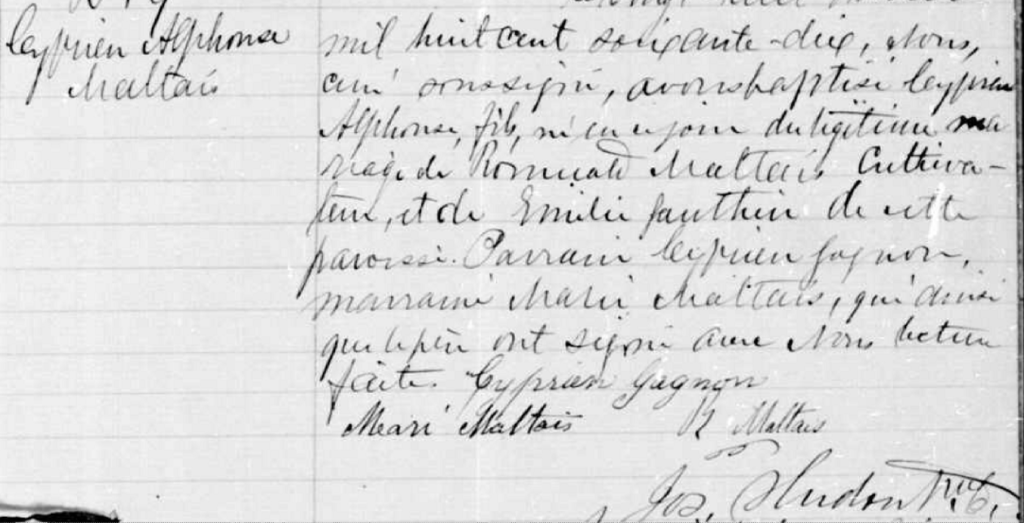 Cyprien Alphonse
Maltais
mil huit cent soixante-dix, Nous,
curé soussigné, avons baptisé Cyprien
Alphonse, fils, né en ce jour du légitime ma
riage de Romuald Maltais Cultiva-
teur, et de Emilie Gauthier de cette
paroisse. Parrain Cyprien Gagnon,
marraine Marie Maltais, qui ainsi
que le père ont signé avec Nous lecture
faite. Cyprien Gagnon
Marie Maltais R Maltais
Jos. Hudon